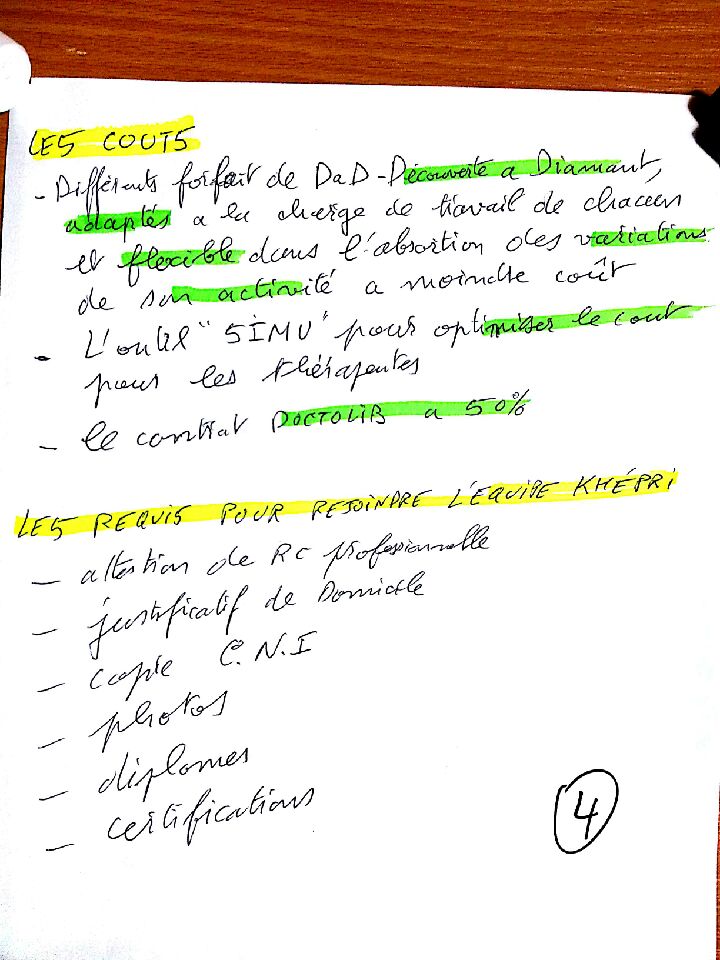 LES COUTS
- Différents forfait de DaD - Découverte a Diamant,
adaptés a la charge de travail de chacun
et flexible dans l'absortion des variations
de son activité a moindre coût
- L'outil "SIMU" pour optimiser le cout
pour les thérapeutes
- le contrat DOCTOLIB a 50%
LES REQUIS POUR REJOINDRE L'EQUIPE KHÉPRI
- attestion de RC professionnelle
- justificatif de Domicile
- copie C.N.I
- photos
- diplomes
- certifications
4